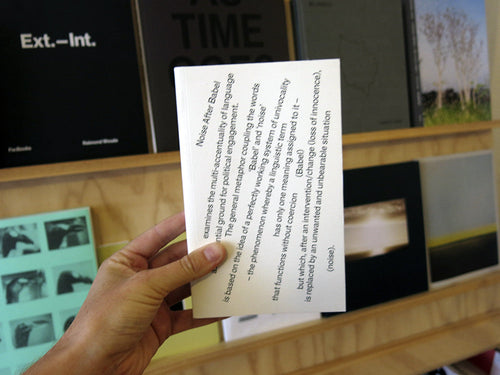 Ext.–Int.
AS
TIME
GOES
Noise After Babel
examines the multi-accentuality of language
potential ground for political engagement.
The general metaphor coupling the words
'Babel' and 'noise'
is based on the idea of a perfectly working system of univocality
– the phenomenon whereby a linguistic term
has only one meaning assigned to it –
that functions without coercion (Babel)
but which, after an intervention/change (loss of innocence),
is replaced by an unwanted and unbearable situation
(noise).